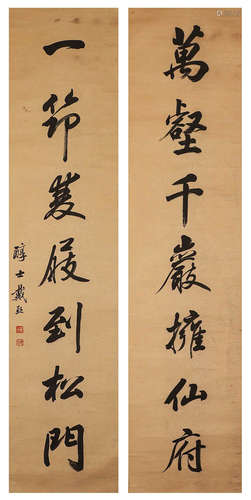 萬壑千巖擁仙府
一筇蓑屐到松門
醇士戴熙